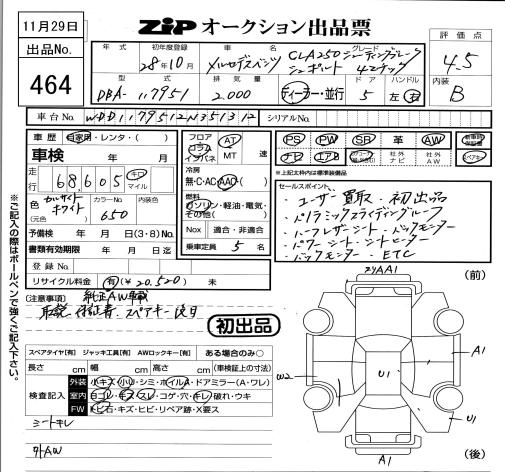 11月29日
ZIP オークション出品票
出品No.
464
評価点
4.5
内装
B
年式 初年度登録 車名 グレード
28年10月 メルセデスベンツ CLA250シューティングブレーク
シュポルト 4マチック
型式 排気量 ドア ハンドル
DBA-117951 2.000 ディーラー・並行 5 左・右
車台No. WDD1179512N351312 シリアルNo.
車歴 自家用・レンタ・( )
車検 年 月
走行 68,605 キロ マイル
色 カルサイトホワイト (元色) カラーNo. 650 内装色
予備検 年 月 日(3・8)No.
書類有効期限 年 月 日迄
登録No.
リサイクル料金 有(¥20.520) 未
フロア コラム インパネ AT MT 速
冷房 無・C・AC・AAC・( )
燃料 ガソリン・軽油・電気・その他( )
Nox 適合・非適合
乗車定員 5 名
PS PW SR 革 AW 新車時保証書
ナビ エアB 社外ナビ 社外AW スペアキー
※上記太枠内は標準装備品
セールスポイント
・ユーザー買取・初出品
・パノラミックスライディングルーフ
・ハーフレザーシート・バックモニター
・パワーシート・シートヒーター
・バックモニター・ETC
[注意事項] 純正AW車載
取説・保証書・スペアキー後日
初出品
スペアタイヤ[有] ジャッキ工具[有] AWロックキー[有] ある場合のみ○
長さ cm 幅 cm 高さ cm (車検証上の寸法)
検査記入
外装 小キズ・小凹・シミ・ホイルA・ドアミラー(A・ワレ)
室内 ヨゴレ・キズ・スレ・コゲ・穴・キレ・破れ・ウキ
FW トビ石・キズ・ヒビ・リペア跡・X要ス
シートキレ
外AW
(前)
A1
A1
W2
U1
U1
A1
(後)
※ご記入の際はボールペンで強くご記入下さい。